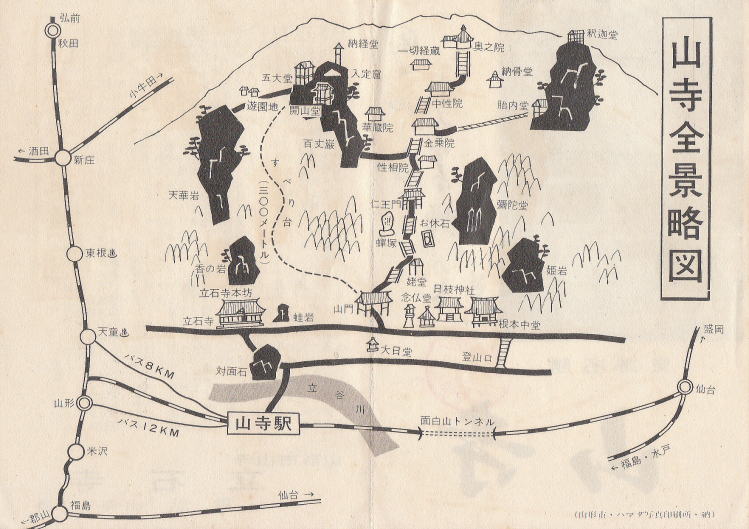 山寺全景略図
弘前
秋田
小牛田→
←酒田
新庄
東根♨
天童♨
バス8KM
山形
バス12KM
米沢
←郡山
福島
仙台→
納経堂
五大堂
入定窟
遊園地
開山堂
百丈巌
華蔵院
一切経蔵
奥之院
納骨堂
釈迦堂
中性院
胎内堂
金乗院
性相院
天華岩
すべり台
(三〇〇メートル)
仁王門
お休石
蟬塚
彌陀堂
姫岩
香の岩
姥堂
立石寺本坊
立石寺
蛙岩
山門
念仏堂
日枝神社
根本中堂
大日堂
登山口
対面石
立谷川
山寺駅
面白山トンネル
盛岡
仙台
←福島・水戸